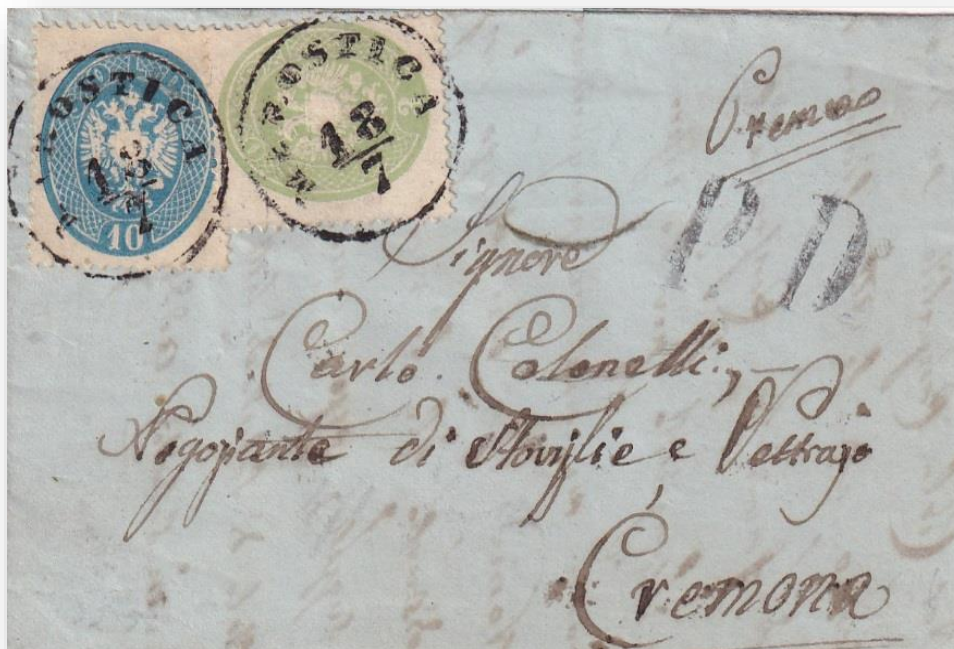 MAROSTICA
18/7
10
MAROSTICA
18/7
P.D
Signore
Carlo Colonelli,
Negoziante di Stoviglie e Vettrajo
Cremona